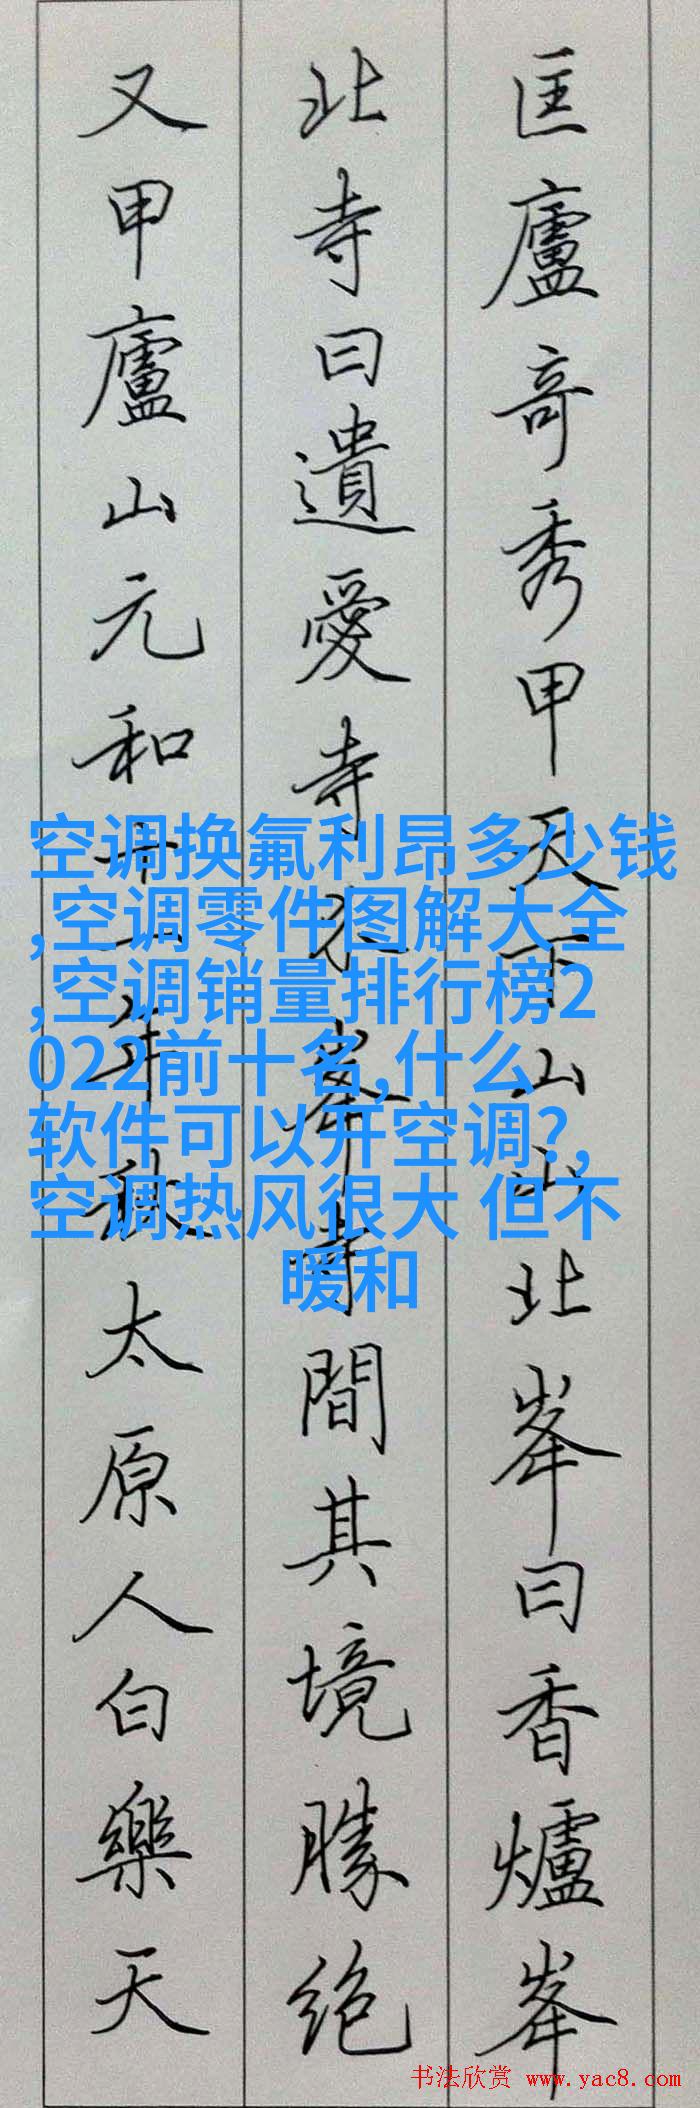 匡廬竒秀甲天下山山北峯曰香爐峯
北寺曰遺愛寺介峯寺間其境勝絶
又甲廬山元和十一年秋太原人白樂天
空调换氟利昂多少钱
,空调零件图解大全
,空调销量排行榜2
022前十名,什么
软件可以开空调?,
空调热风很大 但不
暖和
书法欣赏 www.yac8.com